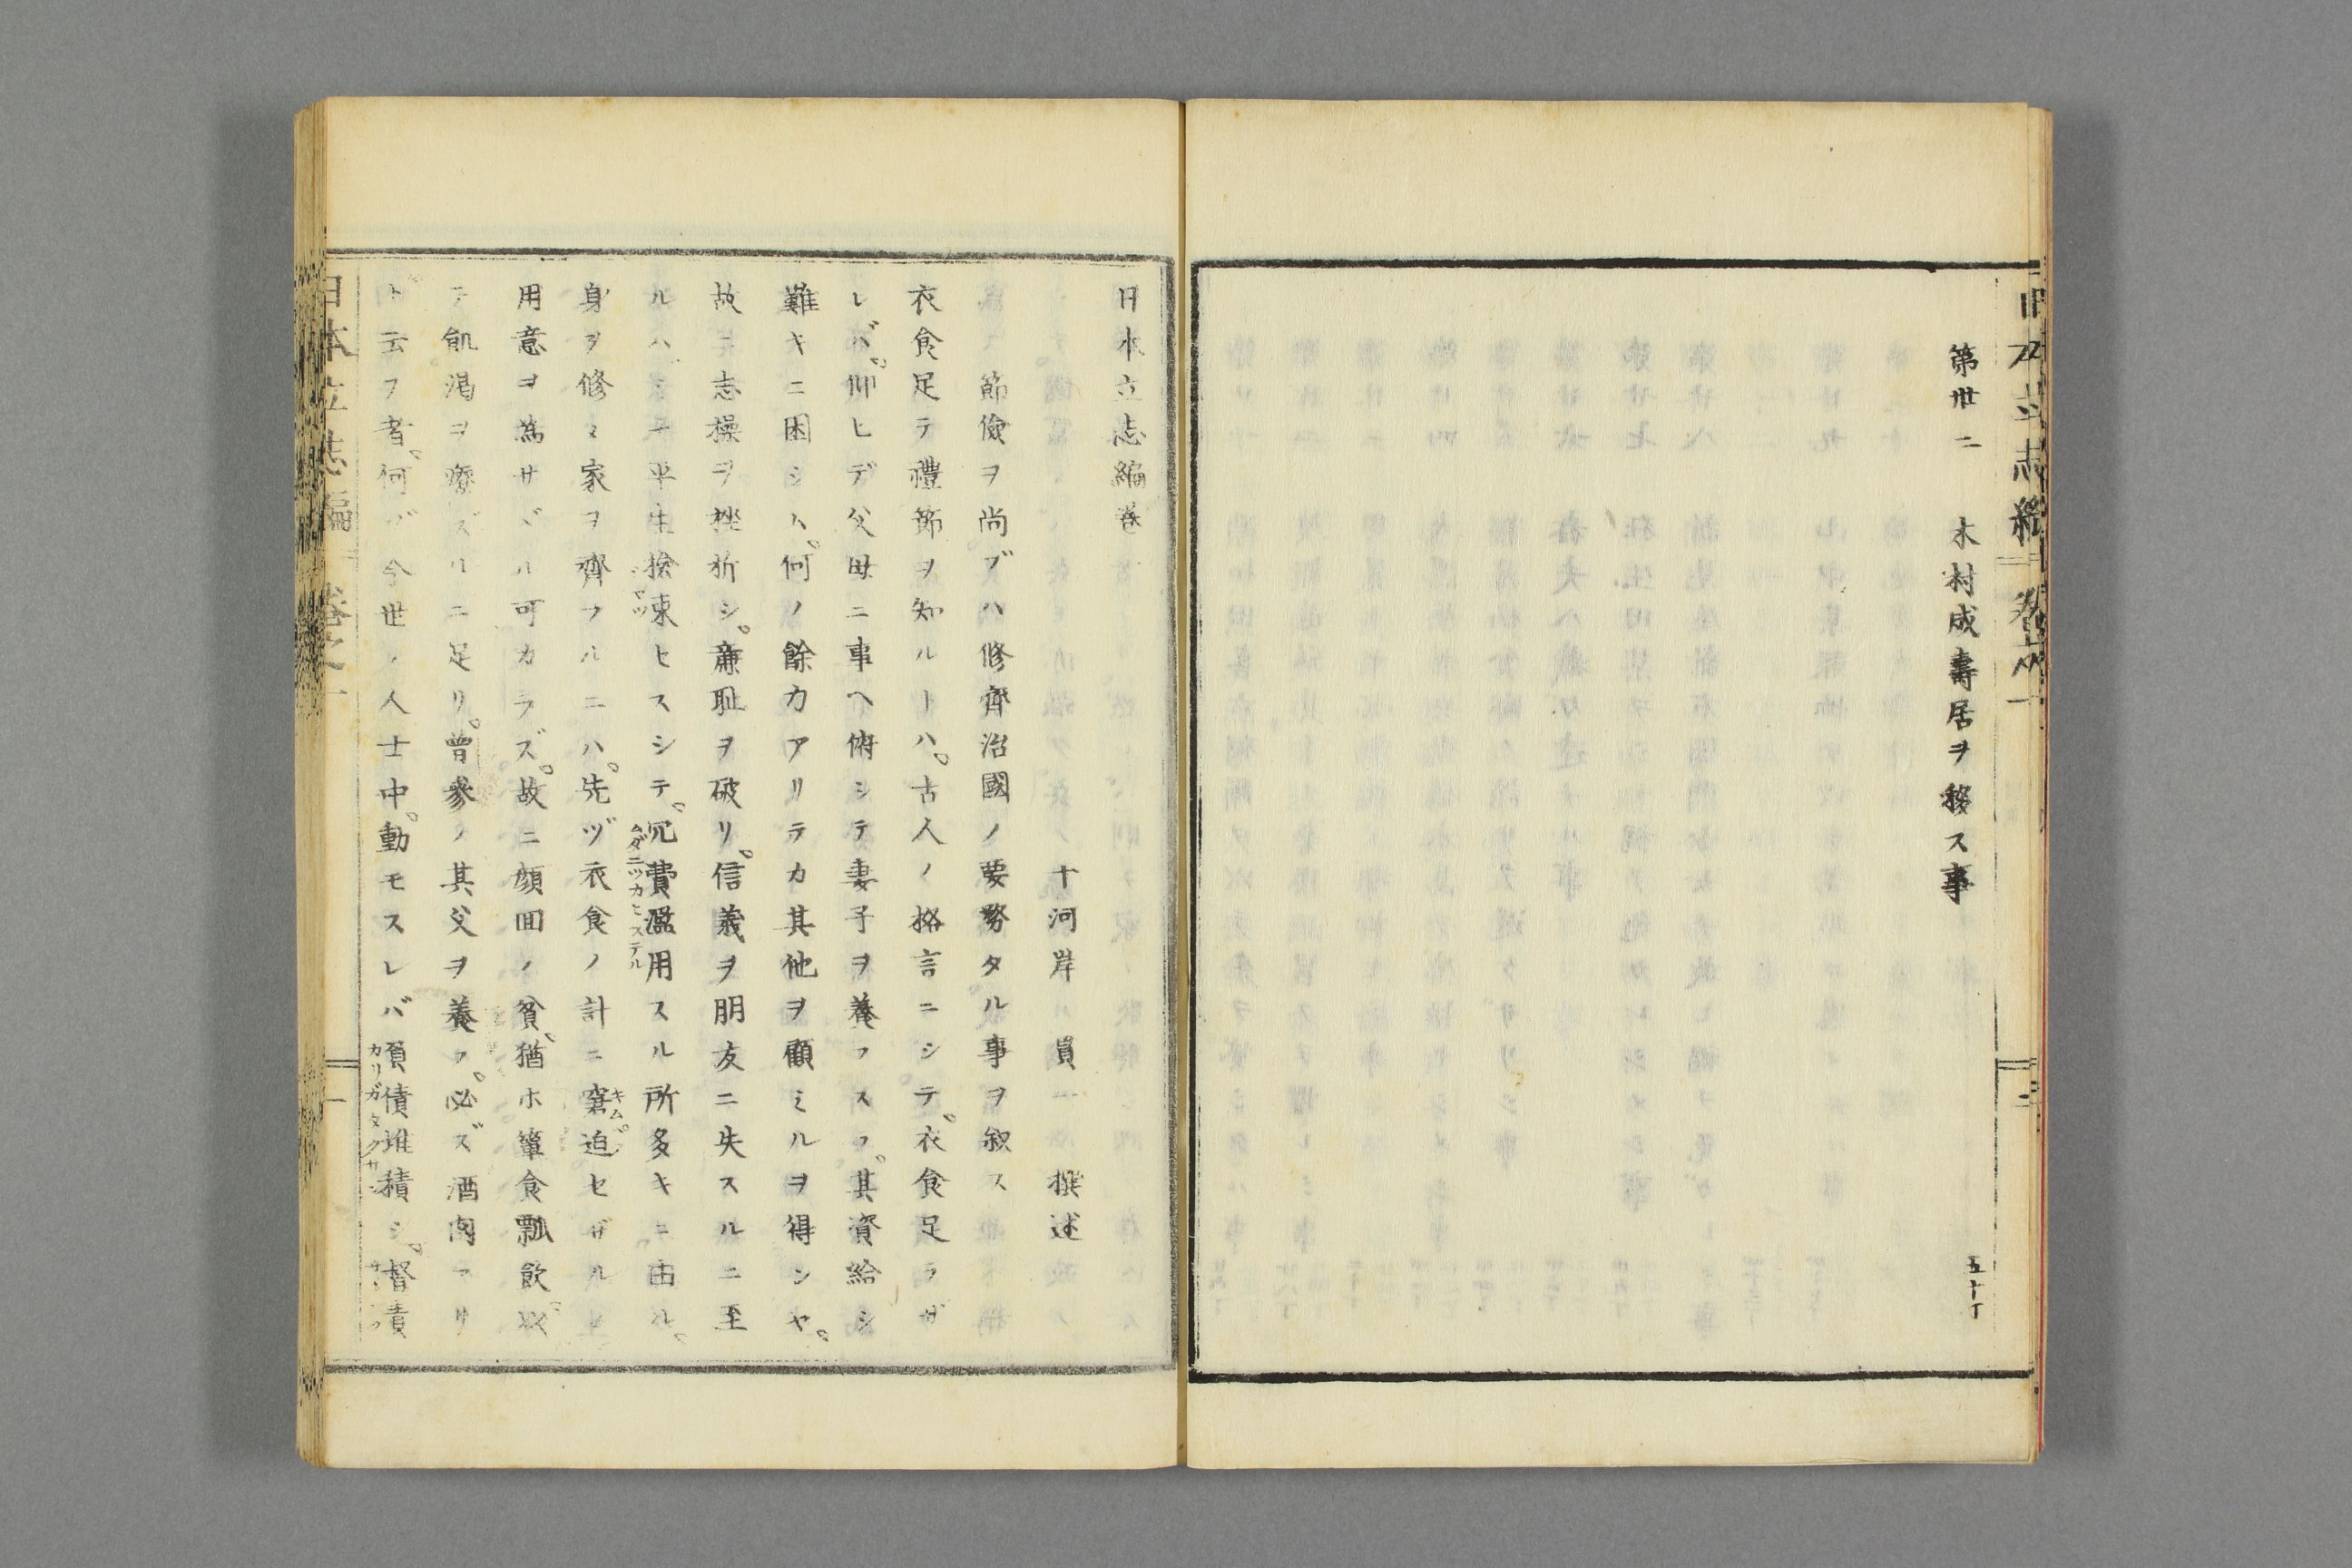 第卅二 木村成壽居ヲ移ス事 五十丁
日本立志編 卷之一
三
日本立志編卷
十河岸貫一撰述
節儉ヲ尚ブハ修齊治國ノ要務タル事ヲ叙ス
衣食足テ禮節ヲ知ルトハ。古人ノ格言ニシテ。衣食足ラザ
レバ。仰ヒデ父母ニ事ヘ俯シテ妻子ヲ養フスラ。其資給シ
難キニ困シム。何ノ餘力アリテカ其他ヲ顧ミルヲ得ンヤ。
故ニ志操ヲ挫折シ。廉耻ヲ破リ。信義ヲ朋友ニ失スルニ至
ルハ 平生 ヒスシテ。冗費濫用スル所多キニ由ル。
ムダニツカヒステル
身ヲ修メ家ヲ齊フルニハ。先ヅ衣食ノ計ニ窘迫セザル
用意ヲ為サヾル可カラズ。故ニ顔回ノ貧、猶ホ簞食瓢飲。以
テ飢渇ヲ療ズルニ足リ。曾參ノ其父ヲ養フ。必ズ酒肉アリ
ト云フ者。何ゾ今世ノ人士中。動モスレバ負債堆積シ。督責
カリガタクサン
日本立志編 卷之一
一